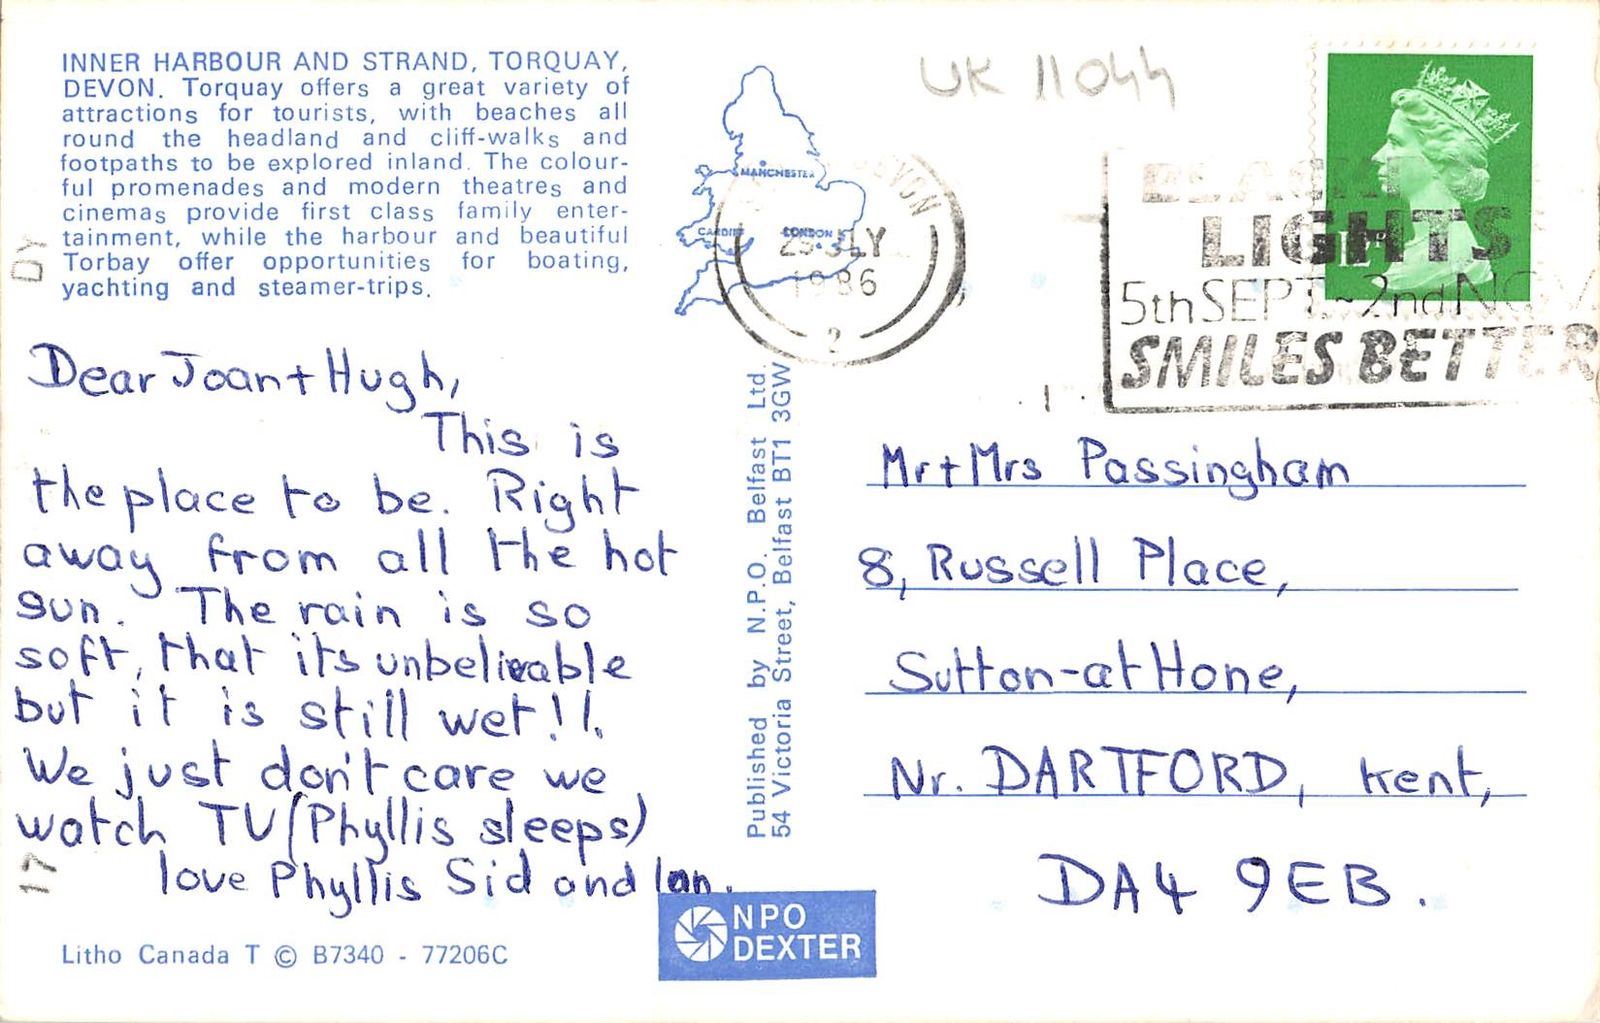 INNER HARBOUR AND STRAND, TORQUAY,
DEVON. Torquay offers a great variety of
attractions for tourists, with beaches all
round the headland and cliff-walks and
footpaths to be explored inland. The colour-
ful promenades and modern theatres and
cinemas provide first class family enter-
tainment, while the harbour and beautiful
Torbay offer opportunities for boating,
yachting and steamer-trips.
UK 11044
MANCHESTER
CARDIFF
LONDON
DEVON
29 JLY
1986
2
LIGHTS
5th SEPT ~ 2nd NOV
SMILES BETTER
DY
17
Dear Joan + Hugh,
This is
the place to be. Right
away from all the hot
sun. The rain is so
soft, that its unbelievable
but it is still wet!!.
We just don't care we
watch TV (Phyllis sleeps)
love Phyllis Sid and Ian.
Published by N.P.O. Belfast Ltd.
54 Victoria Street, Belfast BT1 3GW
Mr + Mrs Passingham
8, Russell Place,
Sutton-at Hone,
Nr. DARTFORD, Kent,
DA4 9EB.
NPO
DEXTER
Litho Canada T © B7340 - 77206C